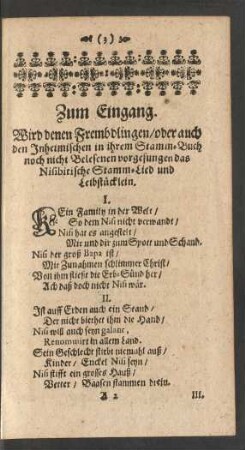 (3)
Zum Eingang.
Wird denen Frembdlingen / oder auch
den Inheimischen in ihrem Stamm-Buch
noch nicht Belesenen vorgesungen das
Nißibitische Stamm-Lied und
Leibstücklein.
I.
KEin Family in der Welt /
So dem Niß nicht verwandt /
Niß hat es angestelt /
Mir und dir zum Spott und Schand.
Niß der groß Papa ist /
Mit Zunahmen schlimmer Christ /
Von ihm fließt die Erb-Sünd her /
Ach daß doch nicht Niß wär.
II.
Ist auff Erden auch ein Stand /
Der nicht biethet ihm die Hand /
Niß will auch seyn galant,
Renommirt in allem Land.
Sein Geschlecht stirbt niemahl auß /
Kinder / Enckel Niß seyn /
Niß stifft ein grosses Hauß /
Vetter / Baasen stammen drein.
A 2
III.